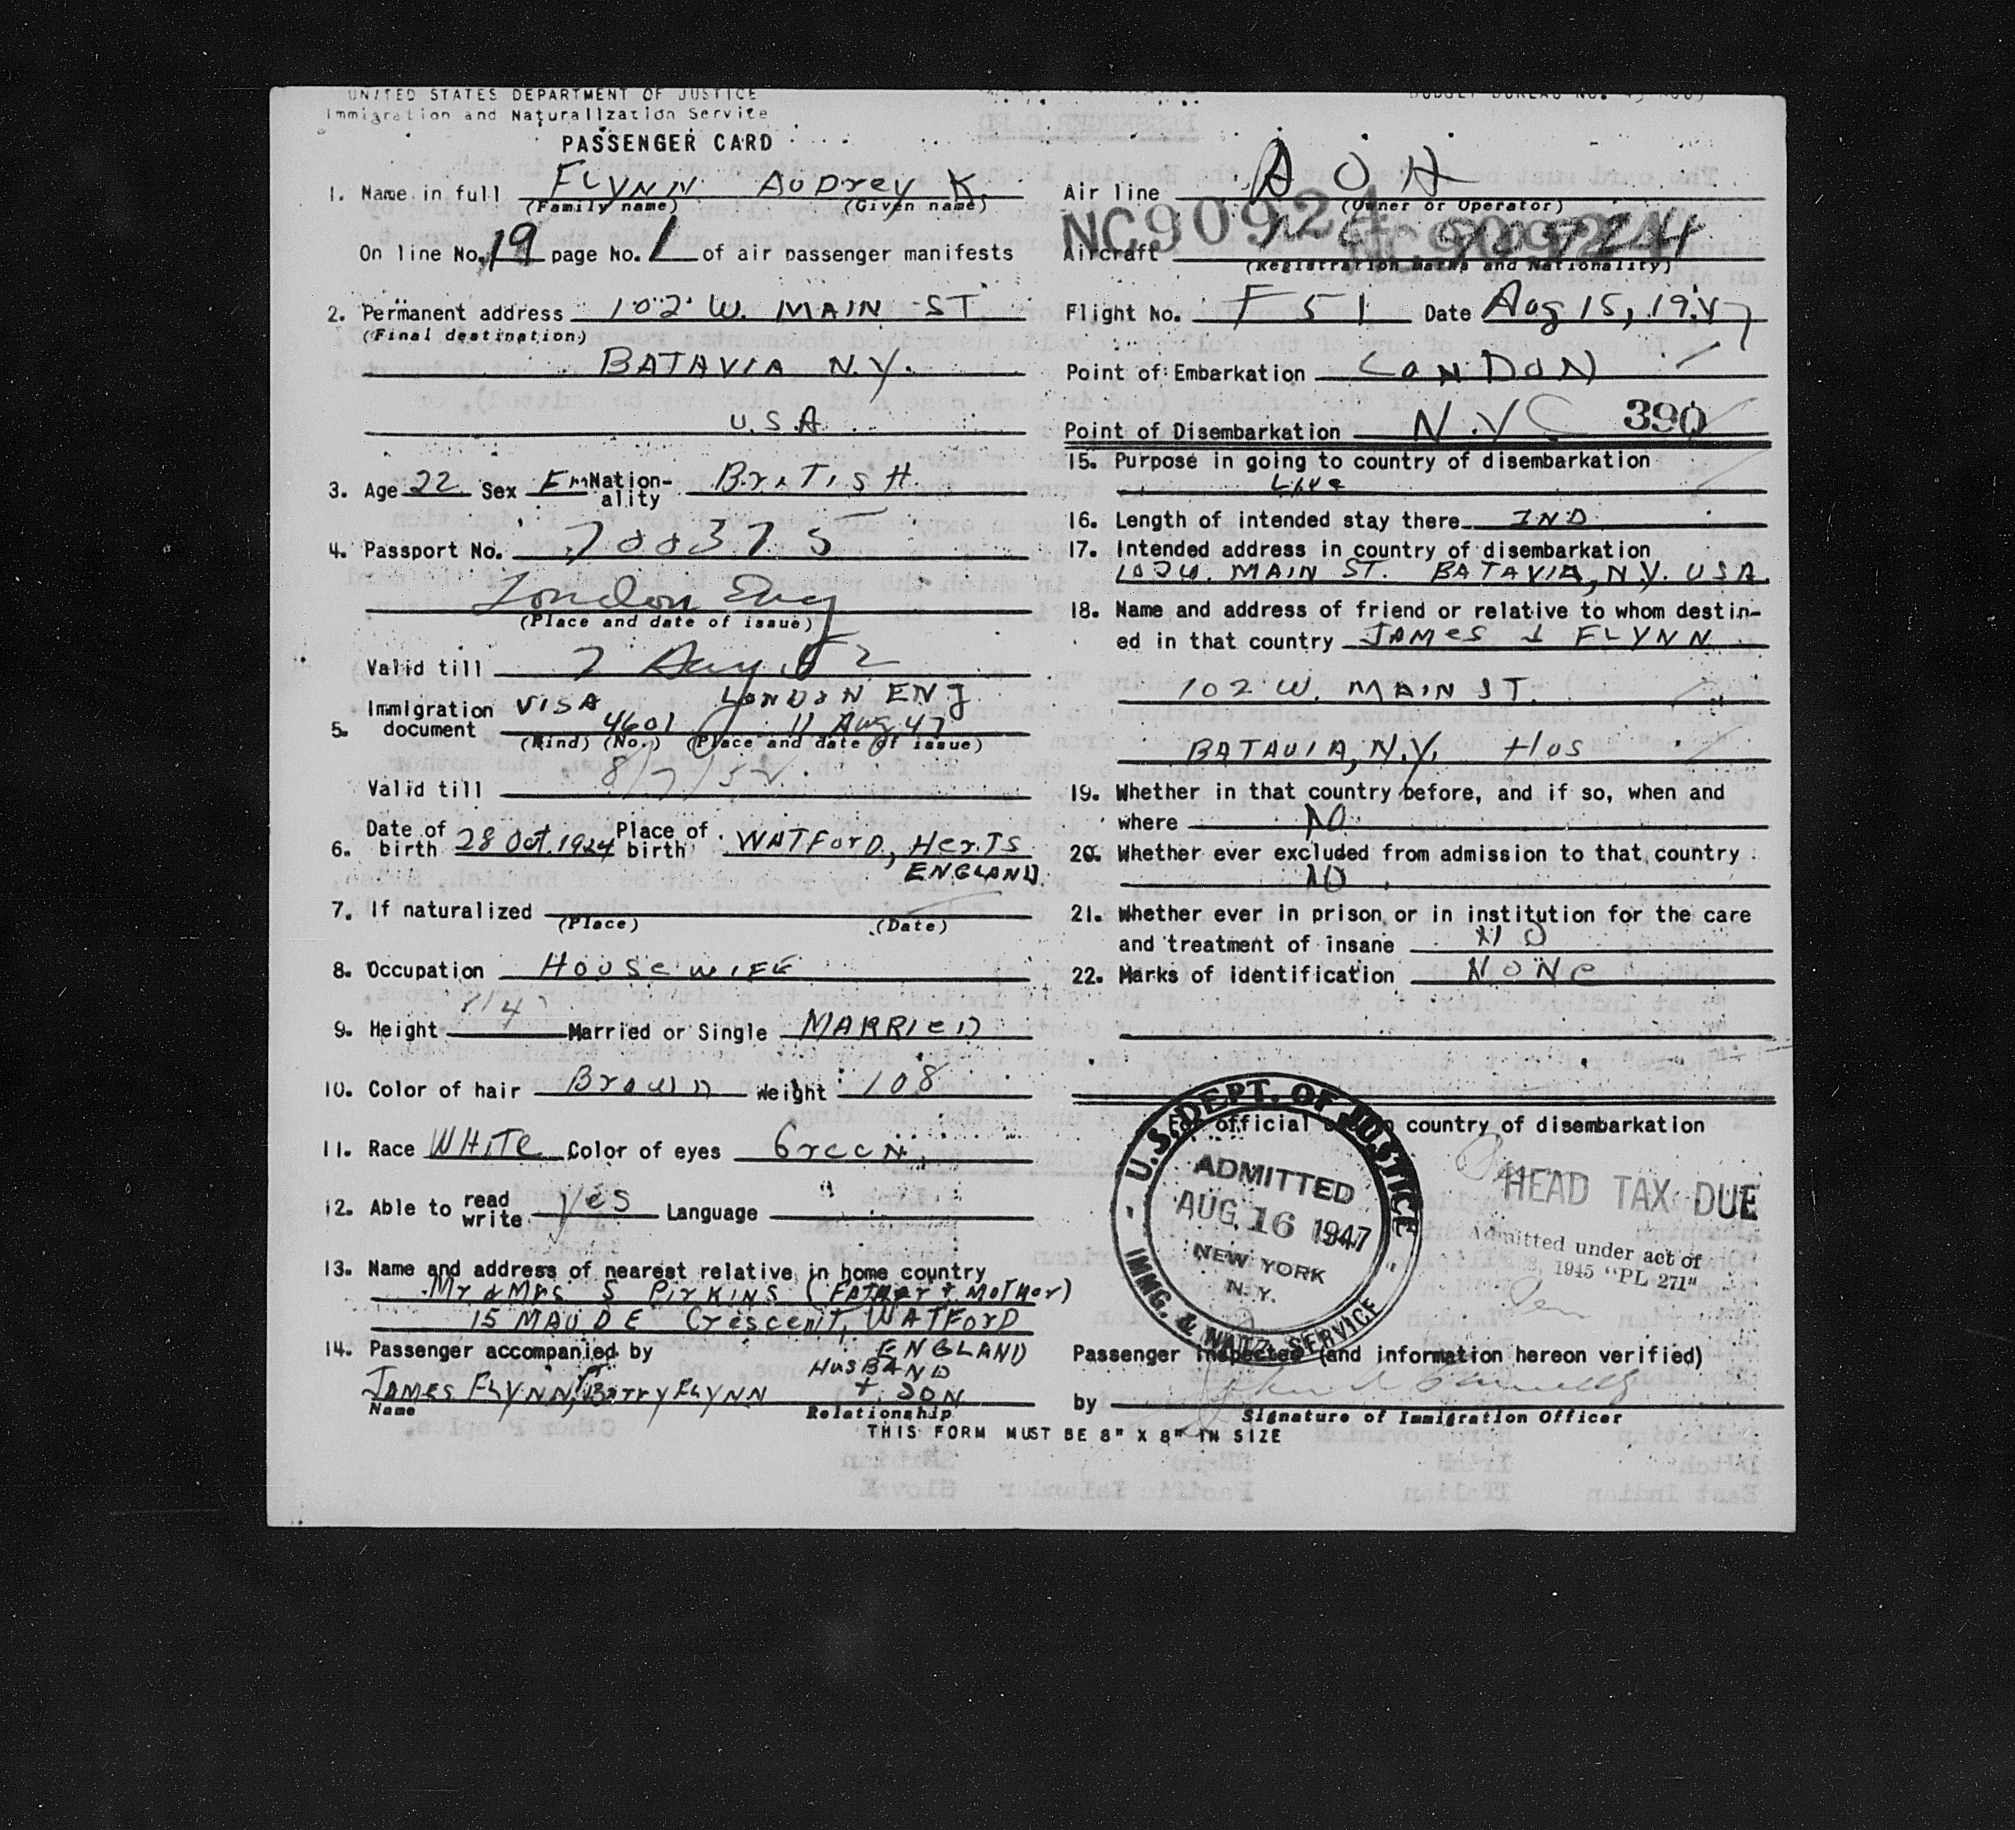 UNITED STATES DEPARTMENT OF JUSTICE
Immigration and Naturalization Service
PASSENGER CARD
1. Name in full FLYNN AUDrey K.
(Family name) (Given name)
On line No. 19 page No. 1 of air passenger manifests
2. Permanent address 102 W. MAIN ST
(Final destination)
BATAVIA N.Y.
U.S.A
3. Age 22 Sex Fm Nation-ality BriTISH
4. Passport No. 700375
London Eng
(Place and date of issue)
Valid till 7 Aug 52
5. Immigration document VISA 4601 LONDON ENG 11 Aug 47
(Kind) (No.) (Place and date of issue)
Valid till 8/7/52
6. Date of birth 28 Oct. 1924 Place of birth WATFOrD, HerTS
ENGLAND
7. If naturalized
(Place) (Date)
8. Occupation HOUSeWIFE
9. Height Married or Single MARRIeD
10. Color of hair Brown Weight 108
11. Race WHITe Color of eyes Green
12. Able to read write yes Language
13. Name and address of nearest relative in home country
Mr & Mrs S PIrKINS (FATHer + MoTHer)
15 MAUDE Crescent, WATFOrD
ENGLAND
14. Passenger accompanied by HUSBAND
JAMES FLYNN, BarryFLYNN + SON
Name Relationship
THIS FORM MUST BE 8" X 8" IN SIZE
Air line A O H
(Owner or Operator)
NC90924 NC90924
Aircraft NC 90924
(Registration Marks and Nationality)
Flight No. F 51 Date Aug 15, 1947
Point of Embarkation LONDON
Point of Disembarkation N.Y C 390
15. Purpose in going to country of disembarkation
Live
16. Length of intended stay there IND
17. Intended address in country of disembarkation
102 W. MAIN ST. BATAVIA, N.Y. USA
18. Name and address of friend or relative to whom destin-
ed in that country JAMes J FLYNN
102 W. MAIN ST.
BATAVIA, N.Y. HUS
19. Whether in that country before, and if so, when and
where NO
20. Whether ever excluded from admission to that country
NO
21. Whether ever in prison or in institution for the care
and treatment of insane NO
22. Marks of identification NONe
For official use in country of disembarkation
U.S. DEPT. OF JUSTICE
ADMITTED
AUG 16 1947
NEW YORK
N.Y.
IMMG. & NATZ. SERVICE
HEAD TAX DUE
Admitted under act of
1945 "PL 271"
Passenger inspected (and information hereon verified)
by
Signature of Immigration Officer